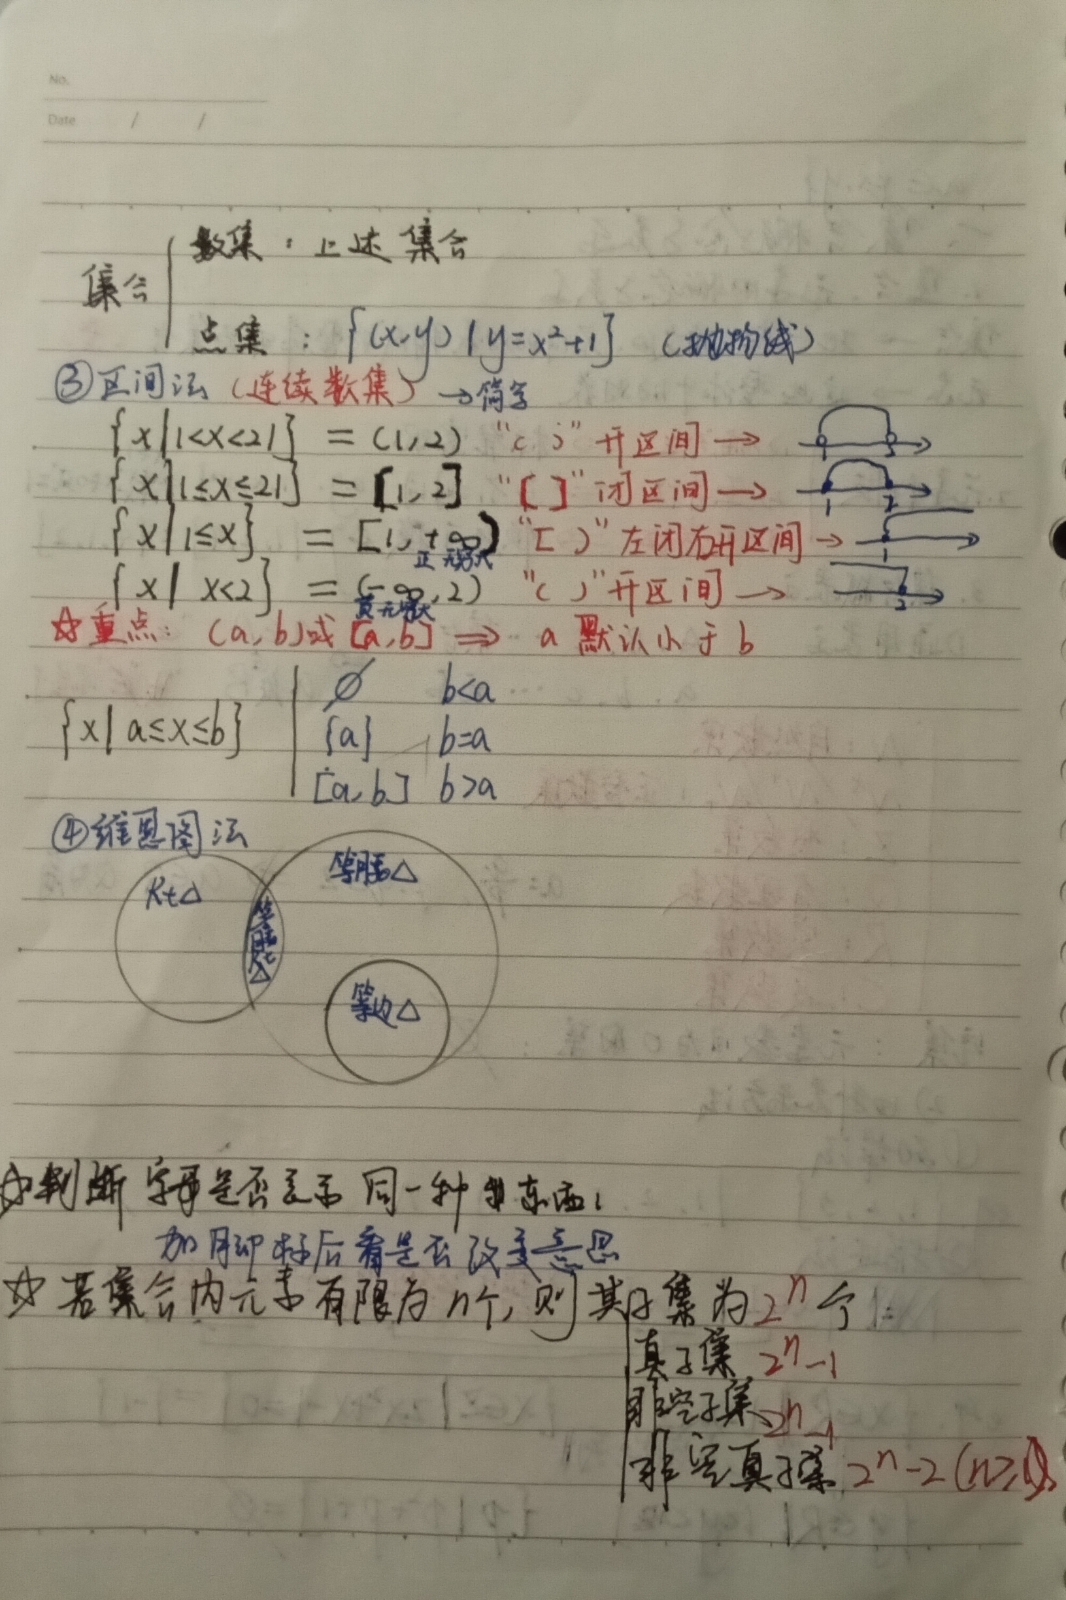 No.
Date / /
集合
数集：上述集合
点集：{(x,y)|y=x²+1} (抛物线)
③区间法(连续数集)→简写
{x|1<x<2|} = (1,2) "( )"开区间→
{x|1≤x≤2|} = [1,2] "[ ]"闭区间→ 1 2
{x|1≤x} = [1,+∞) "[ )"左闭右开区间→ 1
正无穷大
{x| x<2} = (-∞,2) "( )"开区间→ 2
负无穷大
☆重点：(a,b)或[a,b] ⇒ a默认小于b
{x|a≤x≤b}
∅ b<a
{a} b=a
[a,b] b>a
④维恩图法
Rt△ 等腰△
等腰Rt△
等边△
☆判断字母是否表示同一种东西：
加脚标后看是否改变意思
☆若集合内元素有限为n个,则其子集为2ⁿ个：
真子集 2ⁿ-1
非空子集 2ⁿ-1
非空真子集 2ⁿ-2(n≥1)